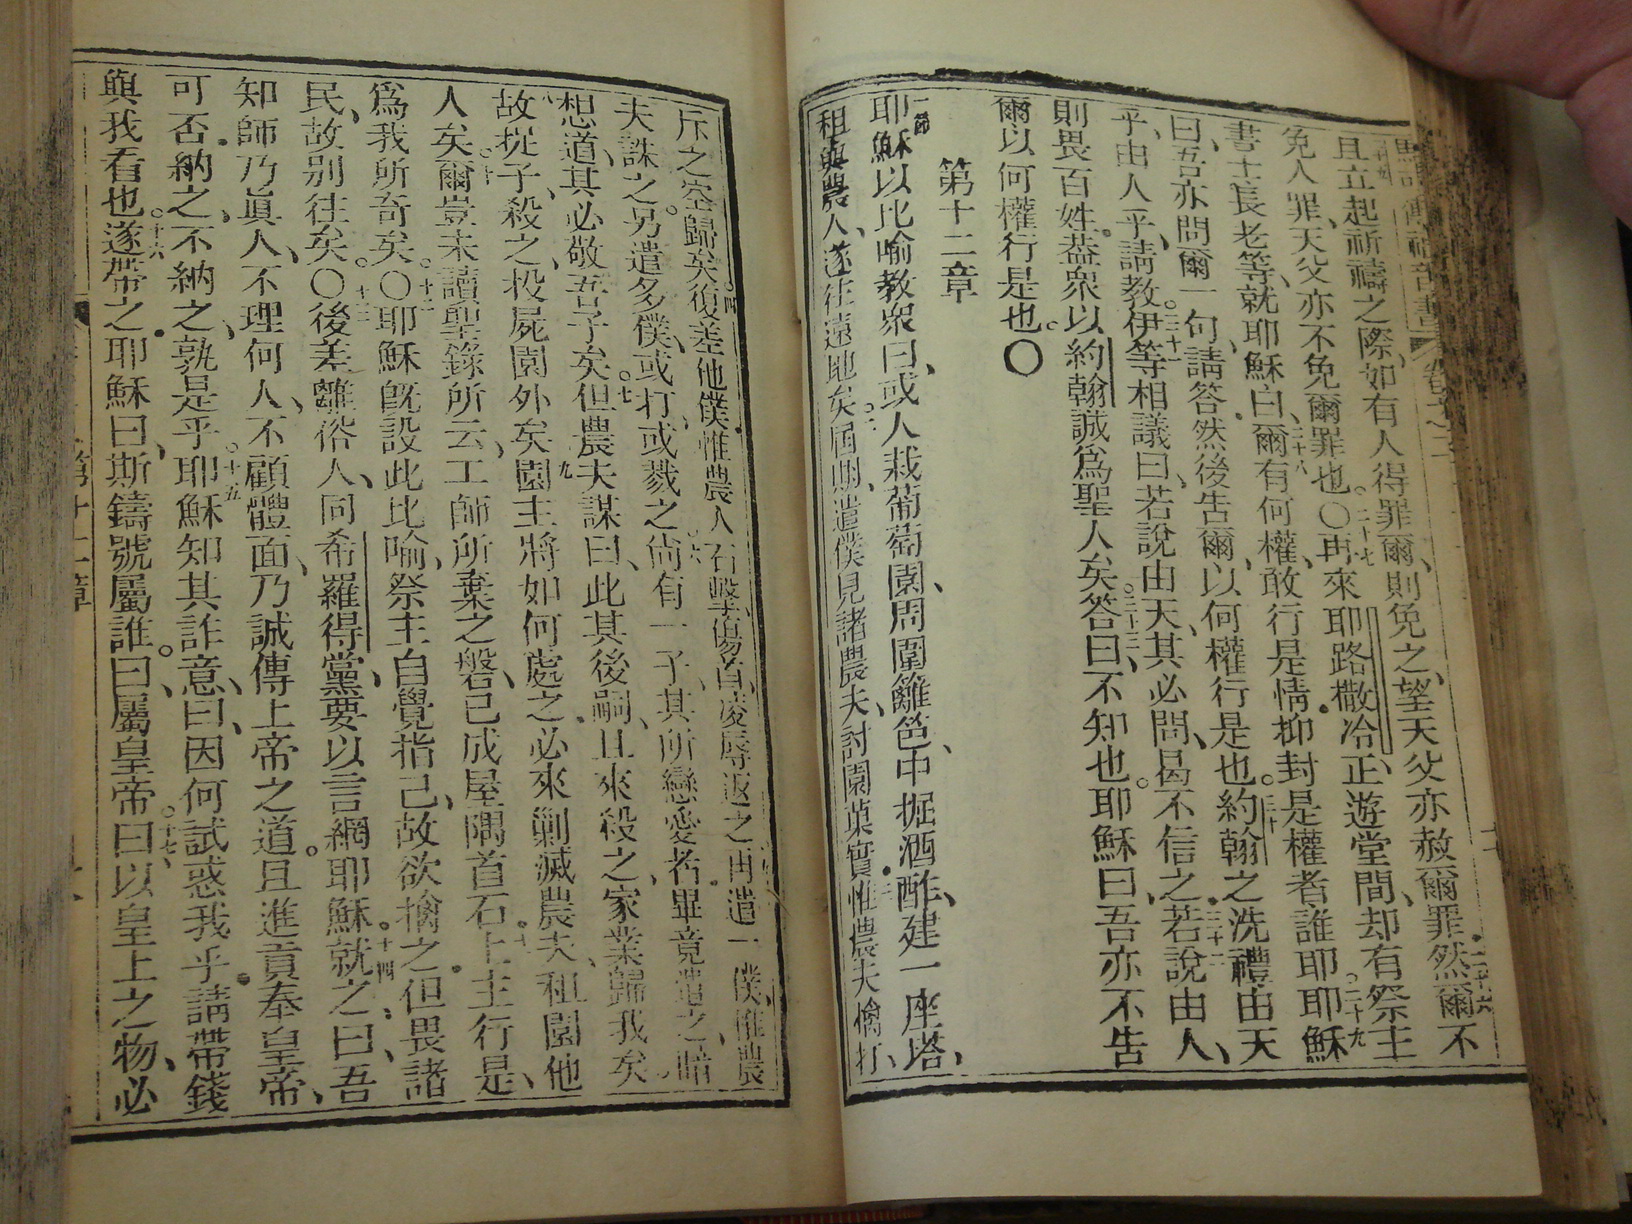 且立起祈禱之際、如有人得罪爾、則免之、望天父亦赦爾罪、然爾不
免人罪、天父亦不免爾罪也。〇再來耶路撒冷、正遊堂間、却有祭主
書士長老等、就耶穌曰、爾有何權、敢行是情、抑封是權者誰、耶穌
曰、吾亦問爾一句、請答、然後吿爾、以何權行是也。約翰之洗禮由天
乎、由人乎、請教、伊等相議曰、若說由天、其必問、曷不信之、若說由人、
則畏百姓、葢衆以約翰誠爲聖人矣。答曰、不知也。耶穌曰、吾亦不吿
爾以何權行是也。〇
第十二章
一節耶穌以比喻教衆曰、或人栽葡萄園、周圍籬笆、中掘酒酢、建一座塔、
租與農人、遂往遠地矣。屆期、遣僕見諸農夫、討園菓實、惟農夫擒打、
斥之空歸矣。復差他僕、惟農人石擊傷首、凌辱返之、再遣一僕、惟農
夫誅之、另遣多僕、或打、或戮之、尚有一子、其所戀愛者、畢竟遣之、暗
想道、其必敬吾子矣。但農夫謀曰、此其後嗣、且來殺之、家業歸我矣、
故捉子、殺之、投屍園外矣。園主將如何處之、必來剿滅農夫、租園他
人矣。爾豈未讀聖錄所云、工師所棄之磐、已成屋隅首石。上主行是、
爲我所奇矣。〇耶穌旣設此比喻、祭主自覺指己、故欲擒之、但畏諸
民、故別往矣。〇後差離俗人、同希羅得黨、要以言網耶穌。就之曰、吾
知師乃眞人、不理何人、不顧體面、乃誠傳上帝之道。且進貢奉皇帝、
可否納之、不納之、孰是乎。耶穌知其詐意、曰、因何試惑我乎、請帶錢
與我看也。遂帶之、耶穌曰、斯鑄號屬誰。曰、屬皇帝。曰、以皇上之物、必